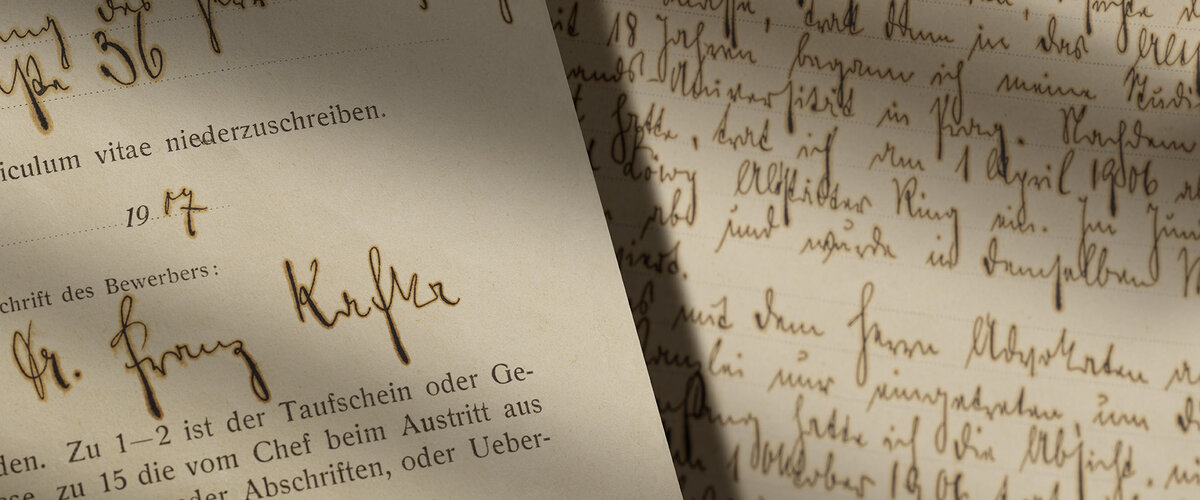 36
iculum vitae niederzuschreiben.
19 07
chrift des Bewerbers:
Dr. Franz Kafka
den. Zu 1—2 ist der Taufschein oder Ge-
zu 15 die vom Chef beim Austritt aus
der Abschriften, oder Ueber-
trat dann in das
18 Jahren begann ich meine Studi
Universität in Prag. Nachdem
hatte, trat ich am 1 April 1906
Altstädter Ring ein. Im Juni
und wurde in demselben
mit dem Herrn Advokaten
nur eingetreten, um
hatte ich die Absicht,
Oktober 1906